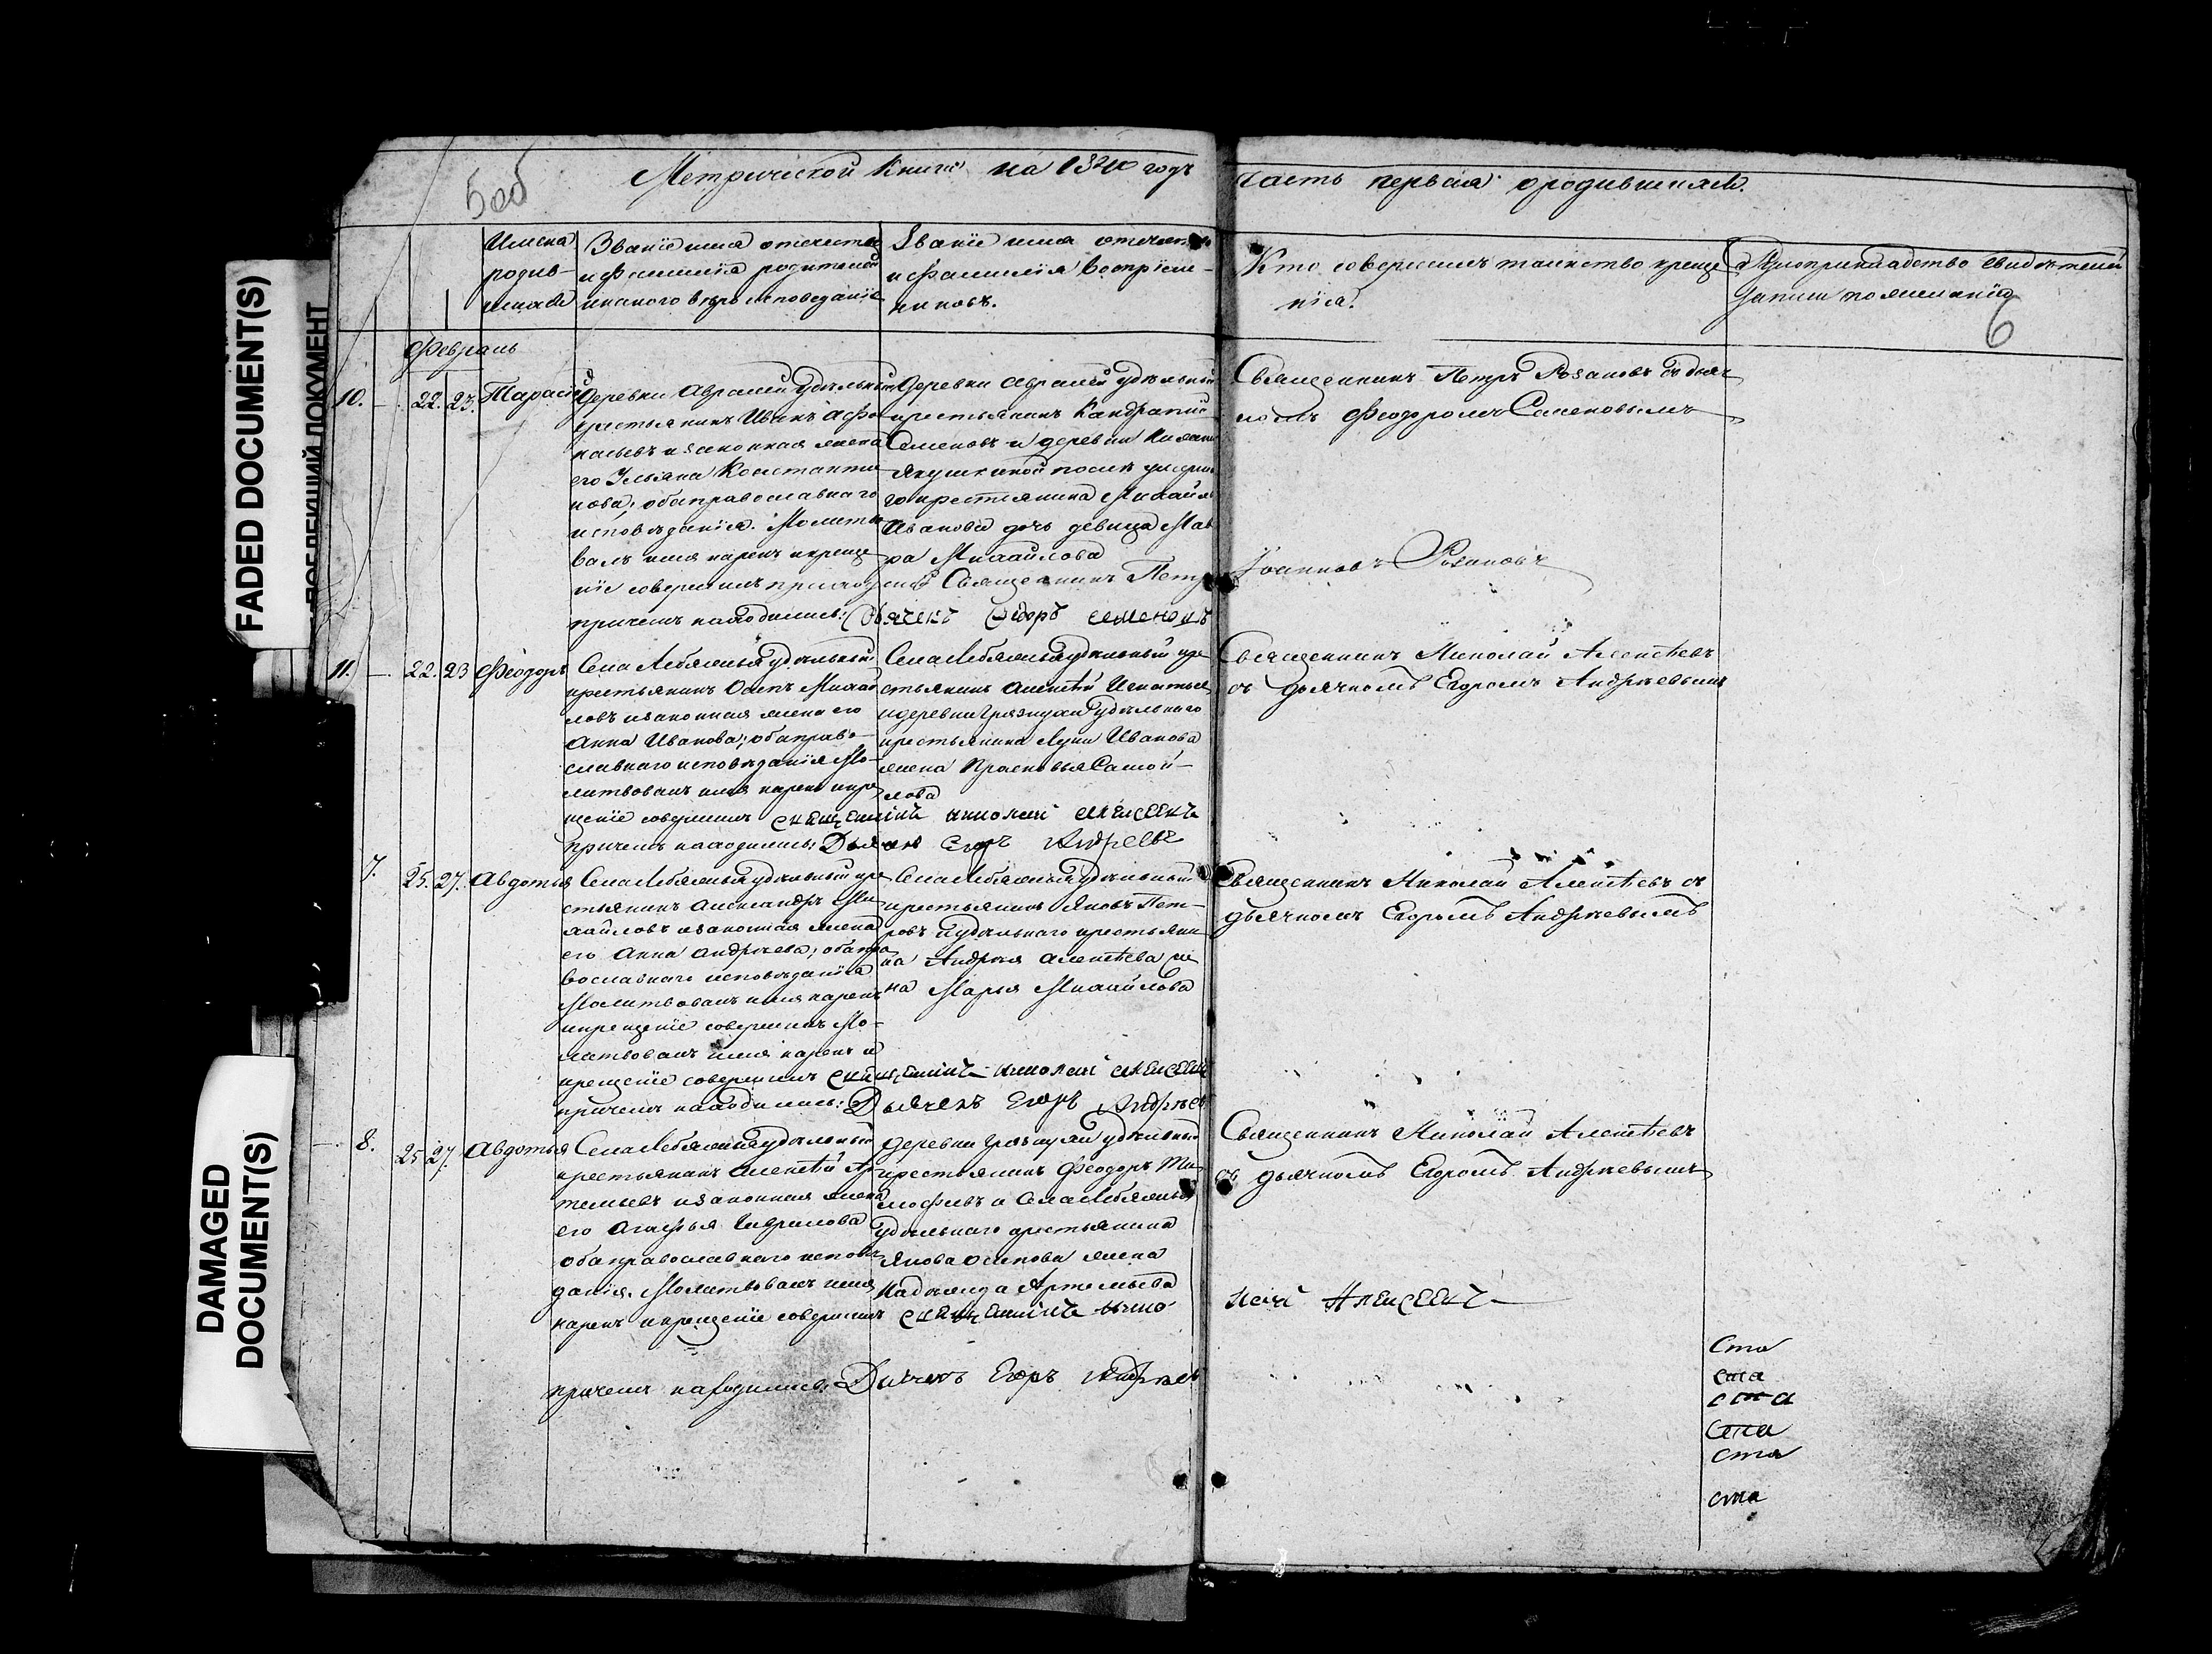 FADED DOCUMENT(S)
DAMAGED
DOCUMENT(S)
5 об
Метрической книги на 1840 годъ
часть первая о родившихся.
Имена
родив-
шихся
Званіе имя отечество
и фамилія родителей
и какого вѣроисповеданія
Званіе имя отечество
и фамилія воспріем-
никовъ.
Кто совершилъ таинство креще
нія.
Рукоприкладство свидѣтелей
записи по желанію
6
Февраль
10. 22. 23. Тарасій
Деревни Авралей удѣльный
крестьянинъ Иванъ Афо
насьевъ и законная жена
его Ульяна Константи
нова, оба православнаго
исповѣданія. Молитв
валъ имя нарекъ и креще
ніе совершилъ приход
причемъ находились:
Деревни Авралей удѣльный
крестьянинъ Кандратій
Семеновъ и деревни
го крестьянина Михайла
Иванова дочь девица Мав
ра Михайлова
ской Священникъ Петръ
Дьячекъ Федоръ Семеновъ
Священникъ Петръ Розановъ съ дьяч
комъ Феодоромъ Семеновымъ
Іоанновъ Розановъ
11. 22. 23 Феодоръ
Села Лебяжья удѣльный
крестьянинъ Осипъ Михай
ловъ и законная жена его
Анна Иванова; оба право-
славнаго исповѣданія Мо-
литвовалъ имя нарекъ и кре
щеніе совершилъ священникъ Николай Алексеевъ
причемъ находились: Дьячекъ Егоръ Андреевъ
Села Лебяжья удѣльный кре
стьянинъ Алексѣй Игнатьев
и деревни Грязнухи удѣльнаго
крестьянина Луки Иванова
жена Прасковья Самой-
лова
Священникъ Николай Алексѣевъ
съ дьячкомъ Егоромъ Андреевымъ
7. 25. 27. Авдотья
Села Лебяжья удѣльный кре
стьянинъ Александръ Ми
хайловъ и законная жена
его Анна Андрѣева; оба пра
вославнаго исповѣданія
Молитвовалъ имя нарекъ
и крещеніе совершилъ Мо-
литвовалъ имя нарекъ и
крещеніе совершилъ священникъ Николай Алексеевъ
причемъ находились: Дьячекъ Егоръ Андрѣев
Села Лебяжья удѣльный
крестьянинъ Яковъ Пет-
ровъ и удѣльнаго крестьяни
на Андрѣя Алексѣева же
на Марья Михайлова
Священникъ Николай Алексѣевъ съ
дьячкомъ Егоромъ Андрѣевымъ
8. 25 27. Авдотья
Села Лебяжья удѣльный
крестьянинъ Алексѣй Ар-
темьевъ и законная жена
его Агафья Гаврилова
оба православнаго исповѣ
данія. Молитвовалъ имя
нарекъ и крещеніе совершилъ священникъ Нико
Деревни Грязнухи удѣльный
крестьянинъ Феодоръ Ти
мофѣевъ и Села Лебяжья
удѣльнаго крестьянина
Якова Осипова жена
Надежда Артемьева
Священникъ Николай Алексѣевъ
съ дьячкомъ Егоромъ Андрѣевымъ
лай Алексеевъ
причемъ находились: Дьячекъ Егоръ Андрѣев